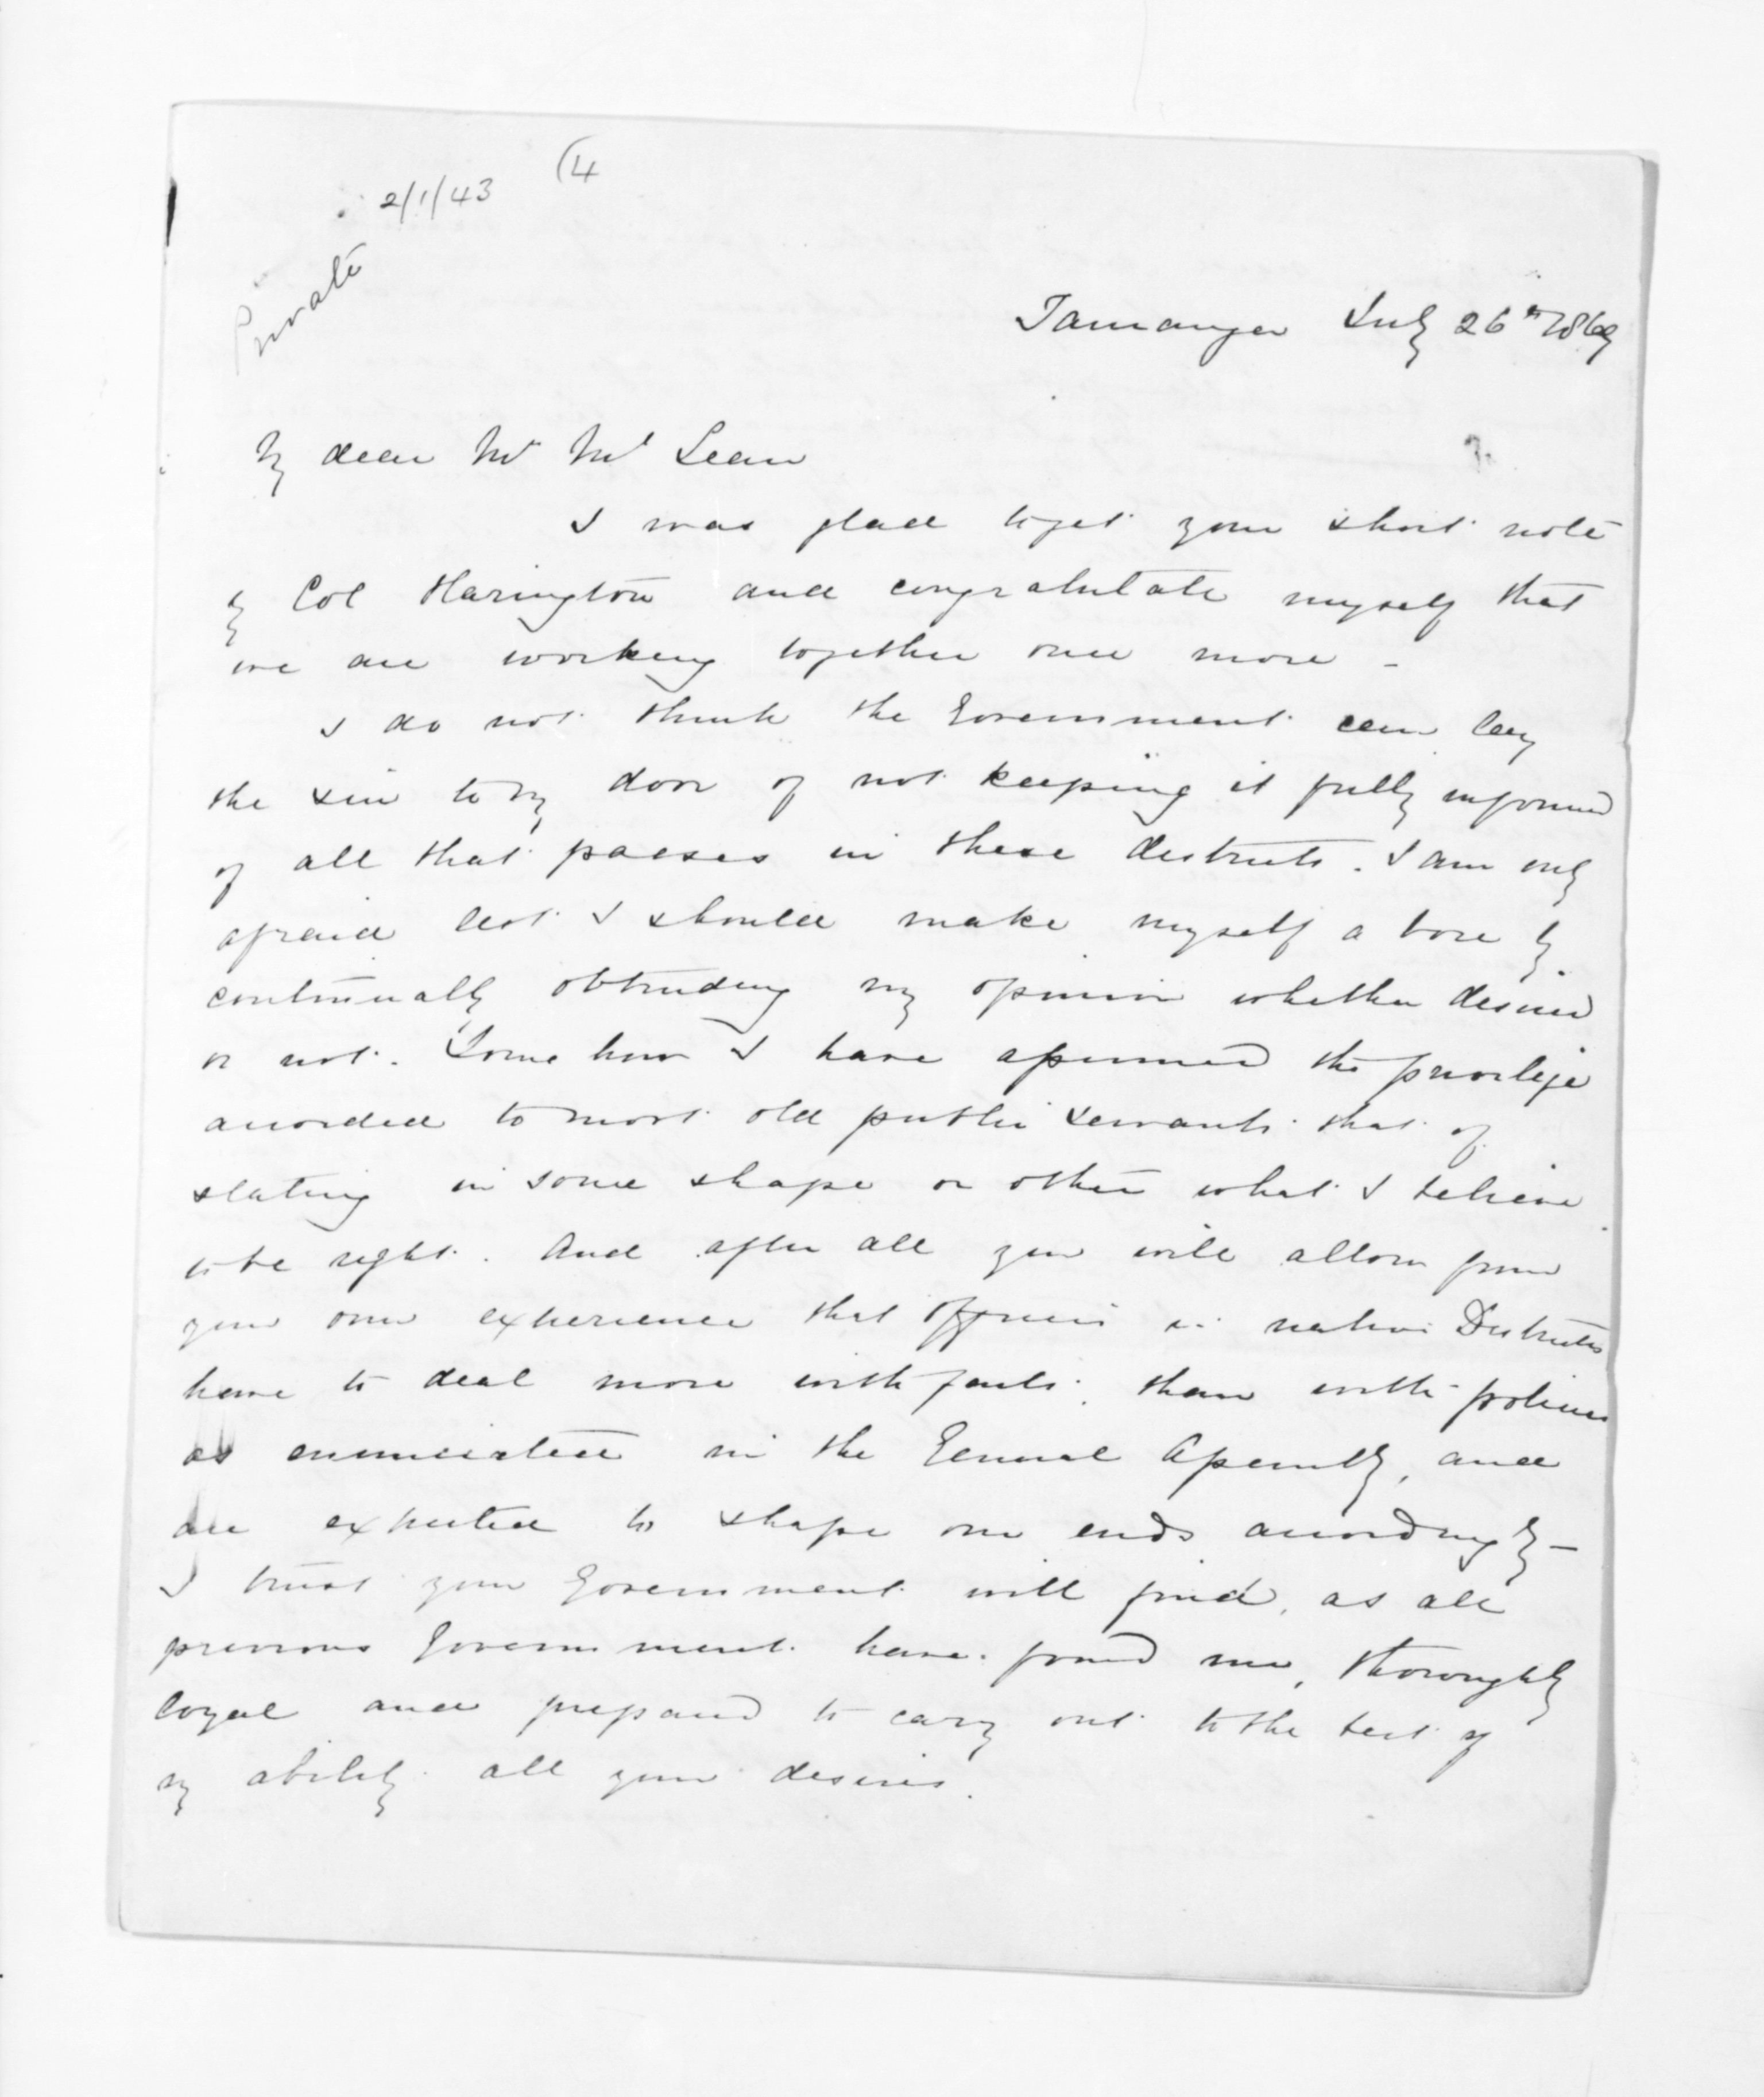 2/1/43 (4
Private
Tauranga July 26th 1869
My dear Mr McLean
I was glad to get your short note
by Col Harington and congratulate myself that
we are working together once more -
I do not think the Government can lay
the sin to my door of not keeping it fully informed
of all that passes in these districts. I am only
afraid lest I should make myself a bore by
continually obtruding my opinion whether desired
or not. Some how I have assumed the privilege
accorded to most old public servants that of
stating in some shape or other what I believe
to be right. And after all you will allow from
your own experience that officers in native Districts
have to deal more with facts than with policies
as enunciated in the General Assembly, and
are expected to shape our ends accordingly -
I trust your Government will find, as all
previous Government have found me, thoroughly
loyal and prepared to carry out to the best of
my ability all your desires.